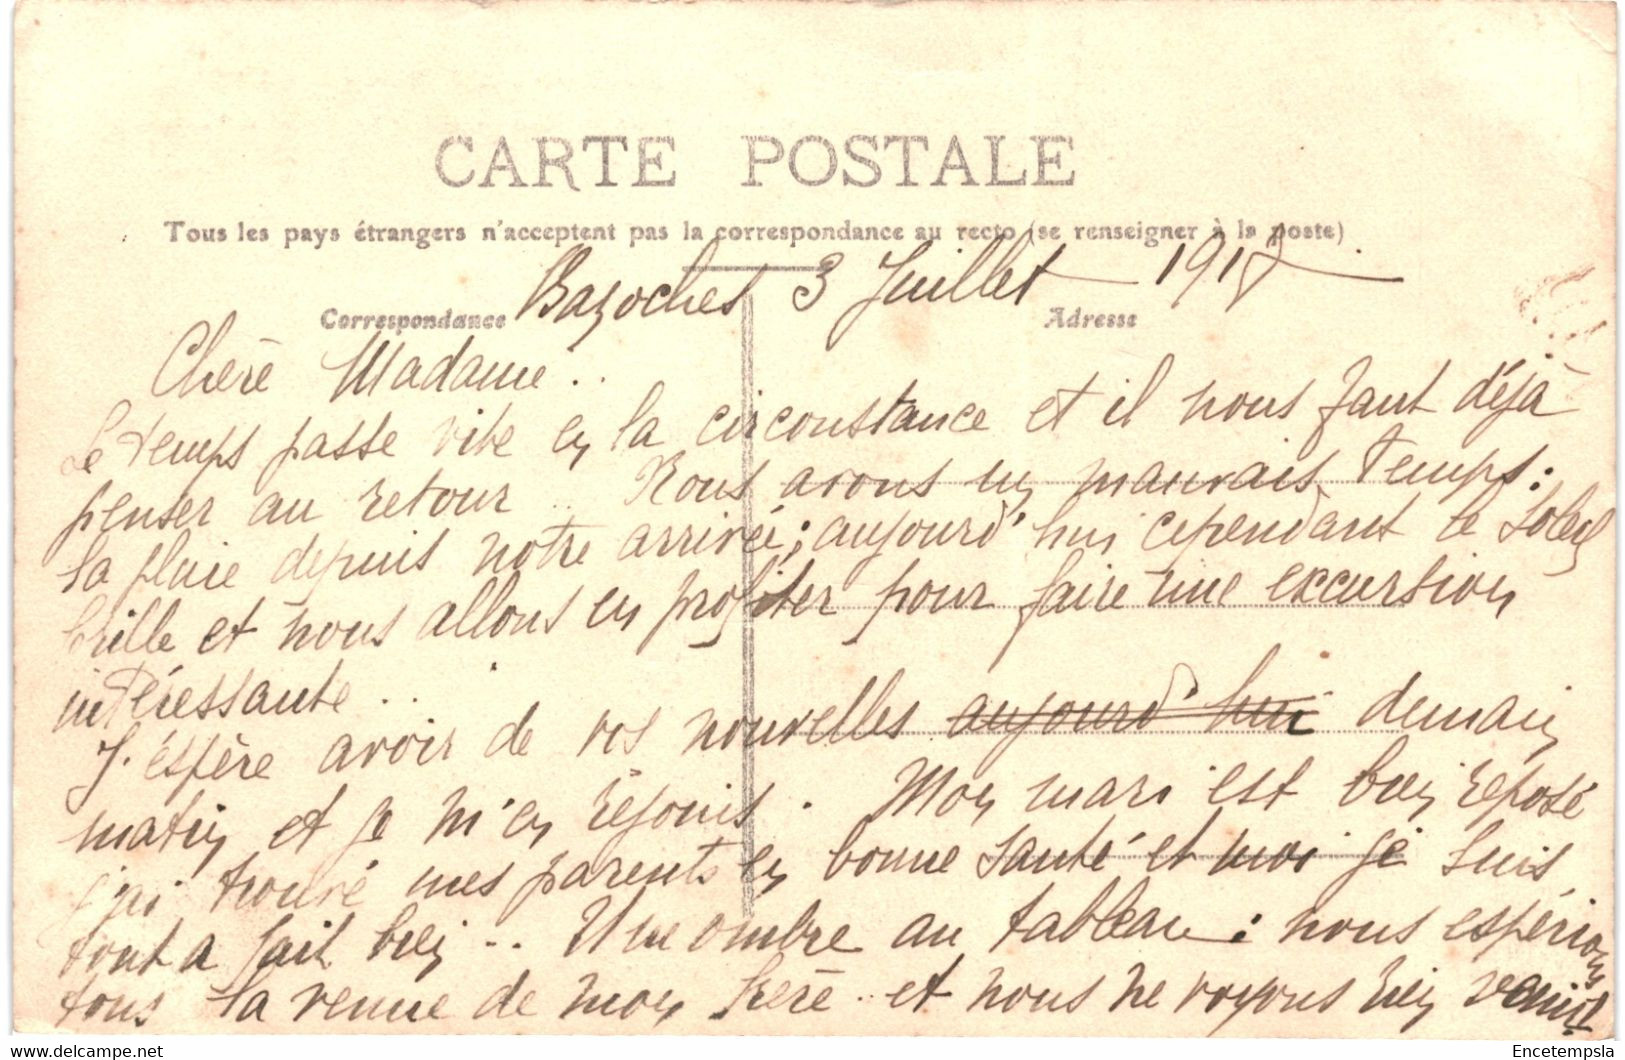 CARTE POSTALE
Tous les pays étrangers n'acceptent pas la correspondance au recto (se renseigner à la poste)
Bazoches 3 Juillet 1917
Correspondance Adresse
Chère Madame..
Le temps passe vite en la circonstance et il nous faut déjà
penser au retour.. Nous avons un mauvais temps:
la pluie depuis notre arrivée; aujourd'hui cependant le soleil
brille et nous allons en profiter pour faire une excursion
intéressante..
J'éspère avoir de vos nouvelles aujourd'hui demain
matin et je m'en réjouis. Mon mari est bien réposé
j'ai trouvé mes parents en bonne santé et moi je suis
tout a fait bien.. Une ombre au tableau: nous espérions
tous la venue de mon frère.. et nous ne voyons rien venir
Encetempsla